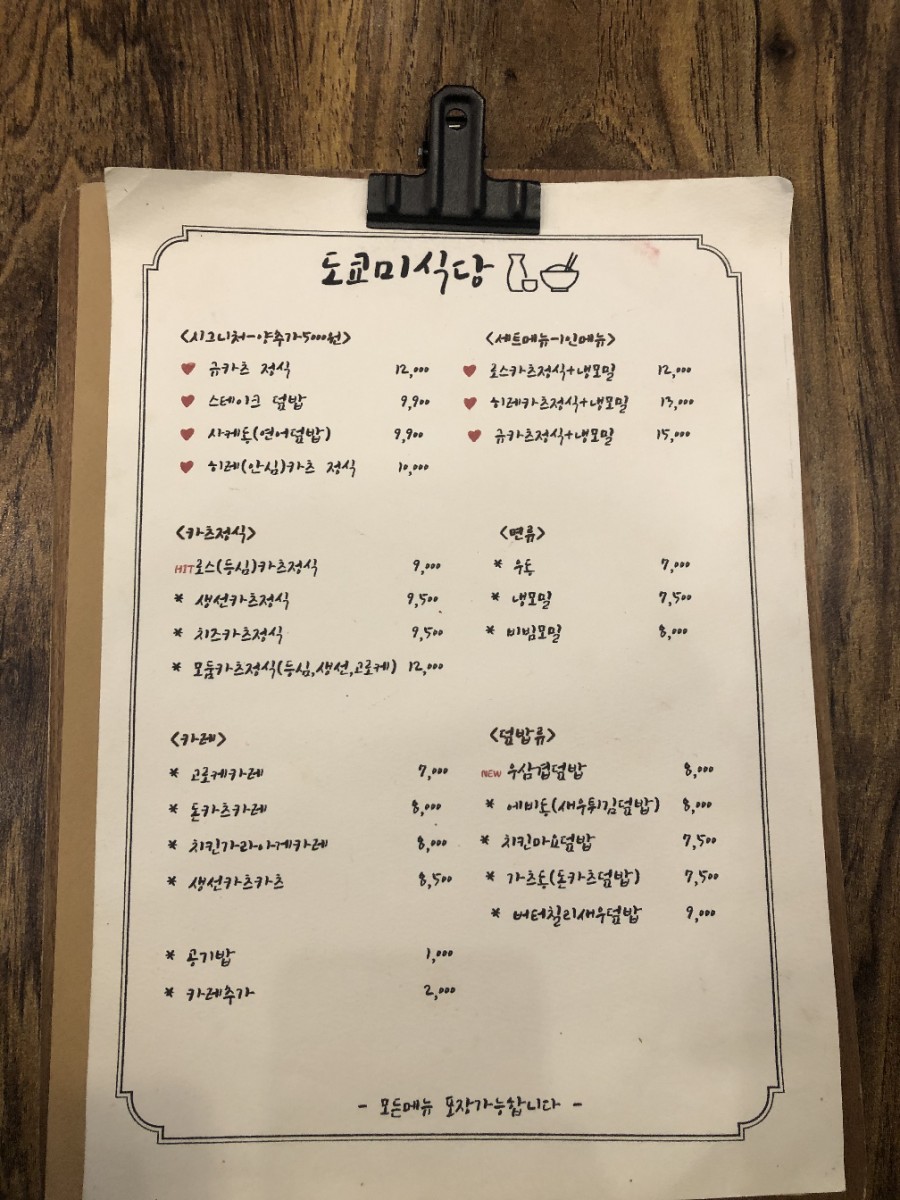 도쿄미식당
<시그니처-양추가5000원>
♥ 규카츠 정식 12,000
♥ 스테이크 덮밥 9,900
♥ 사케동(연어덮밥) 9,900
♥ 히레(안심)카츠 정식 10,000
<세트메뉴-1인메뉴>
♥ 로스카츠정식+냉모밀 12,000
♥ 히레카츠정식+냉모밀 13,000
♥ 규카츠정식+냉모밀 15,000
<카츠정식>
HIT로스(등심)카츠정식 9,000
* 생선카츠정식 9,500
* 치즈카츠정식 9,500
* 모둠카츠정식(등심,생선,고로케) 12,000
<면류>
* 우동 7,000
* 냉모밀 7,500
* 비빔모밀 8,000
<카레>
* 고로케카레 7,000
* 돈카츠카레 8,000
* 치킨가라아게카레 8,000
* 생선카츠카츠 8,500
* 공기밥 1,000
* 카레추가 2,000
<덮밥류>
NEW 우삼겹덮밥 8,000
* 에비동(새우튀김덮밥) 8,000
* 치킨마요덮밥 7,500
* 가츠동(돈카츠덮밥) 7,500
* 버터칠리새우덮밥 9,000
- 모든메뉴 포장가능합니다 -